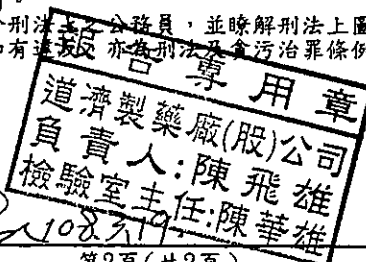 刑法上之公務員，並瞭解刑法上圖
亦為刑法及貪污治罪條例
報告專用章
道濟製藥廠(股)公司
負責人:陳飛雄
檢驗室主任:陳華雄
108.
第2頁(共2頁)